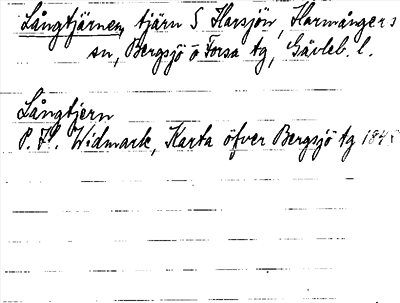 Långtjärnen, tjärn S Harsjön, Harmångers
sn, Bergsjö o Forsa tg, Gävleb. l.
Långtjern
P. H. Widmark, Karta öfver Bergsjö tg 1845